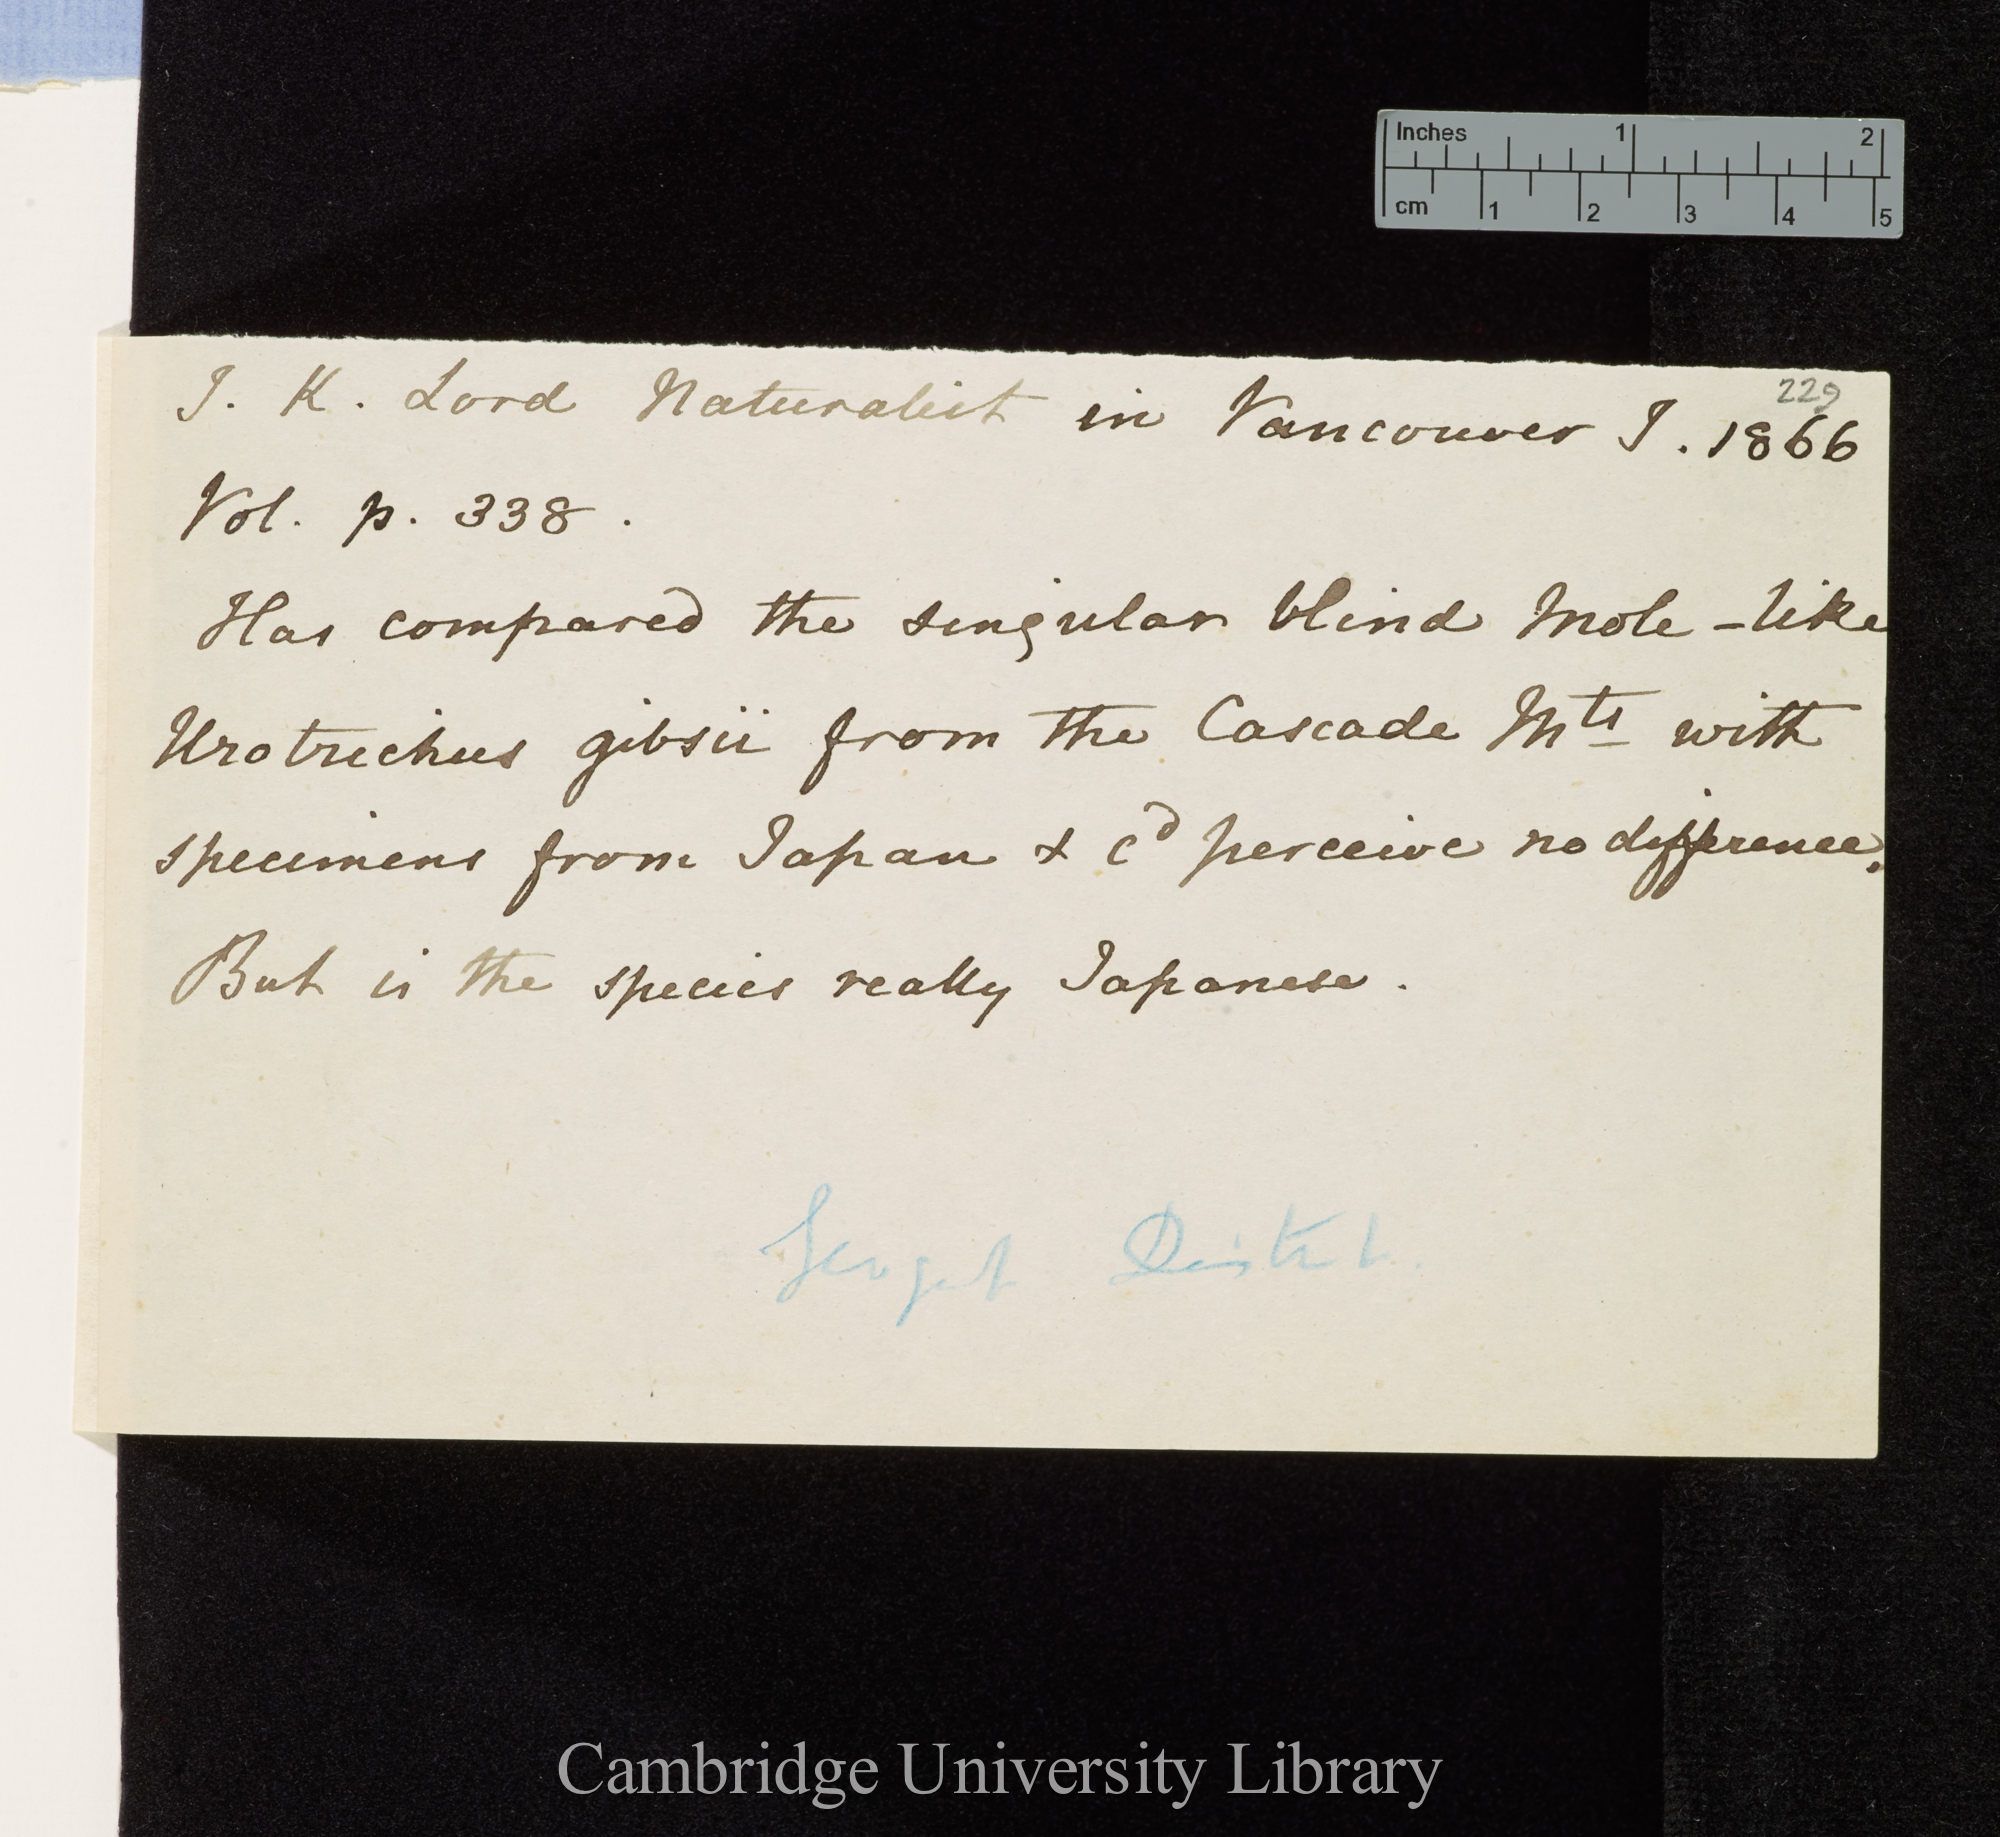 Inches 1 2
cm 1 2 3 4 5
229
J. K. Lord Naturalist in Vancouver I. 1866
Vol. p. 338.
Has compared the singular blind Mole-like
Urotrichus gibsii from the Cascade Mts with
specimens from Japan & cd perceive no difference.
But is the species really Japanese.
Geogrph Distrib.
Cambridge University Library